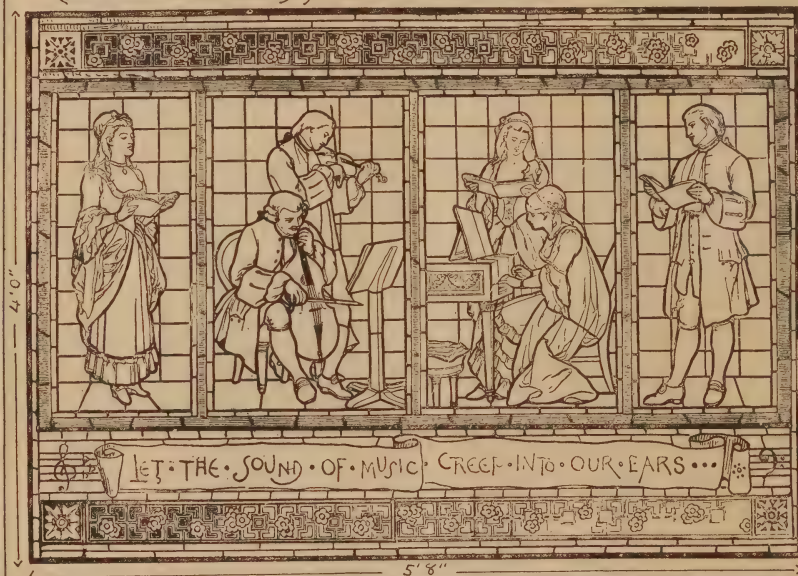 4'0"
LET · THE · SOUND · OF · MUSIC · CREEP · INTO · OUR · EARS · · ·
5'8"